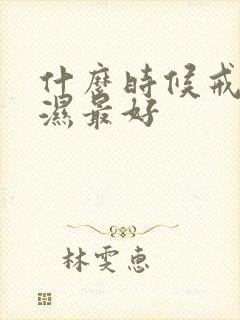 什麼時候戒
濕最好
林雯惠